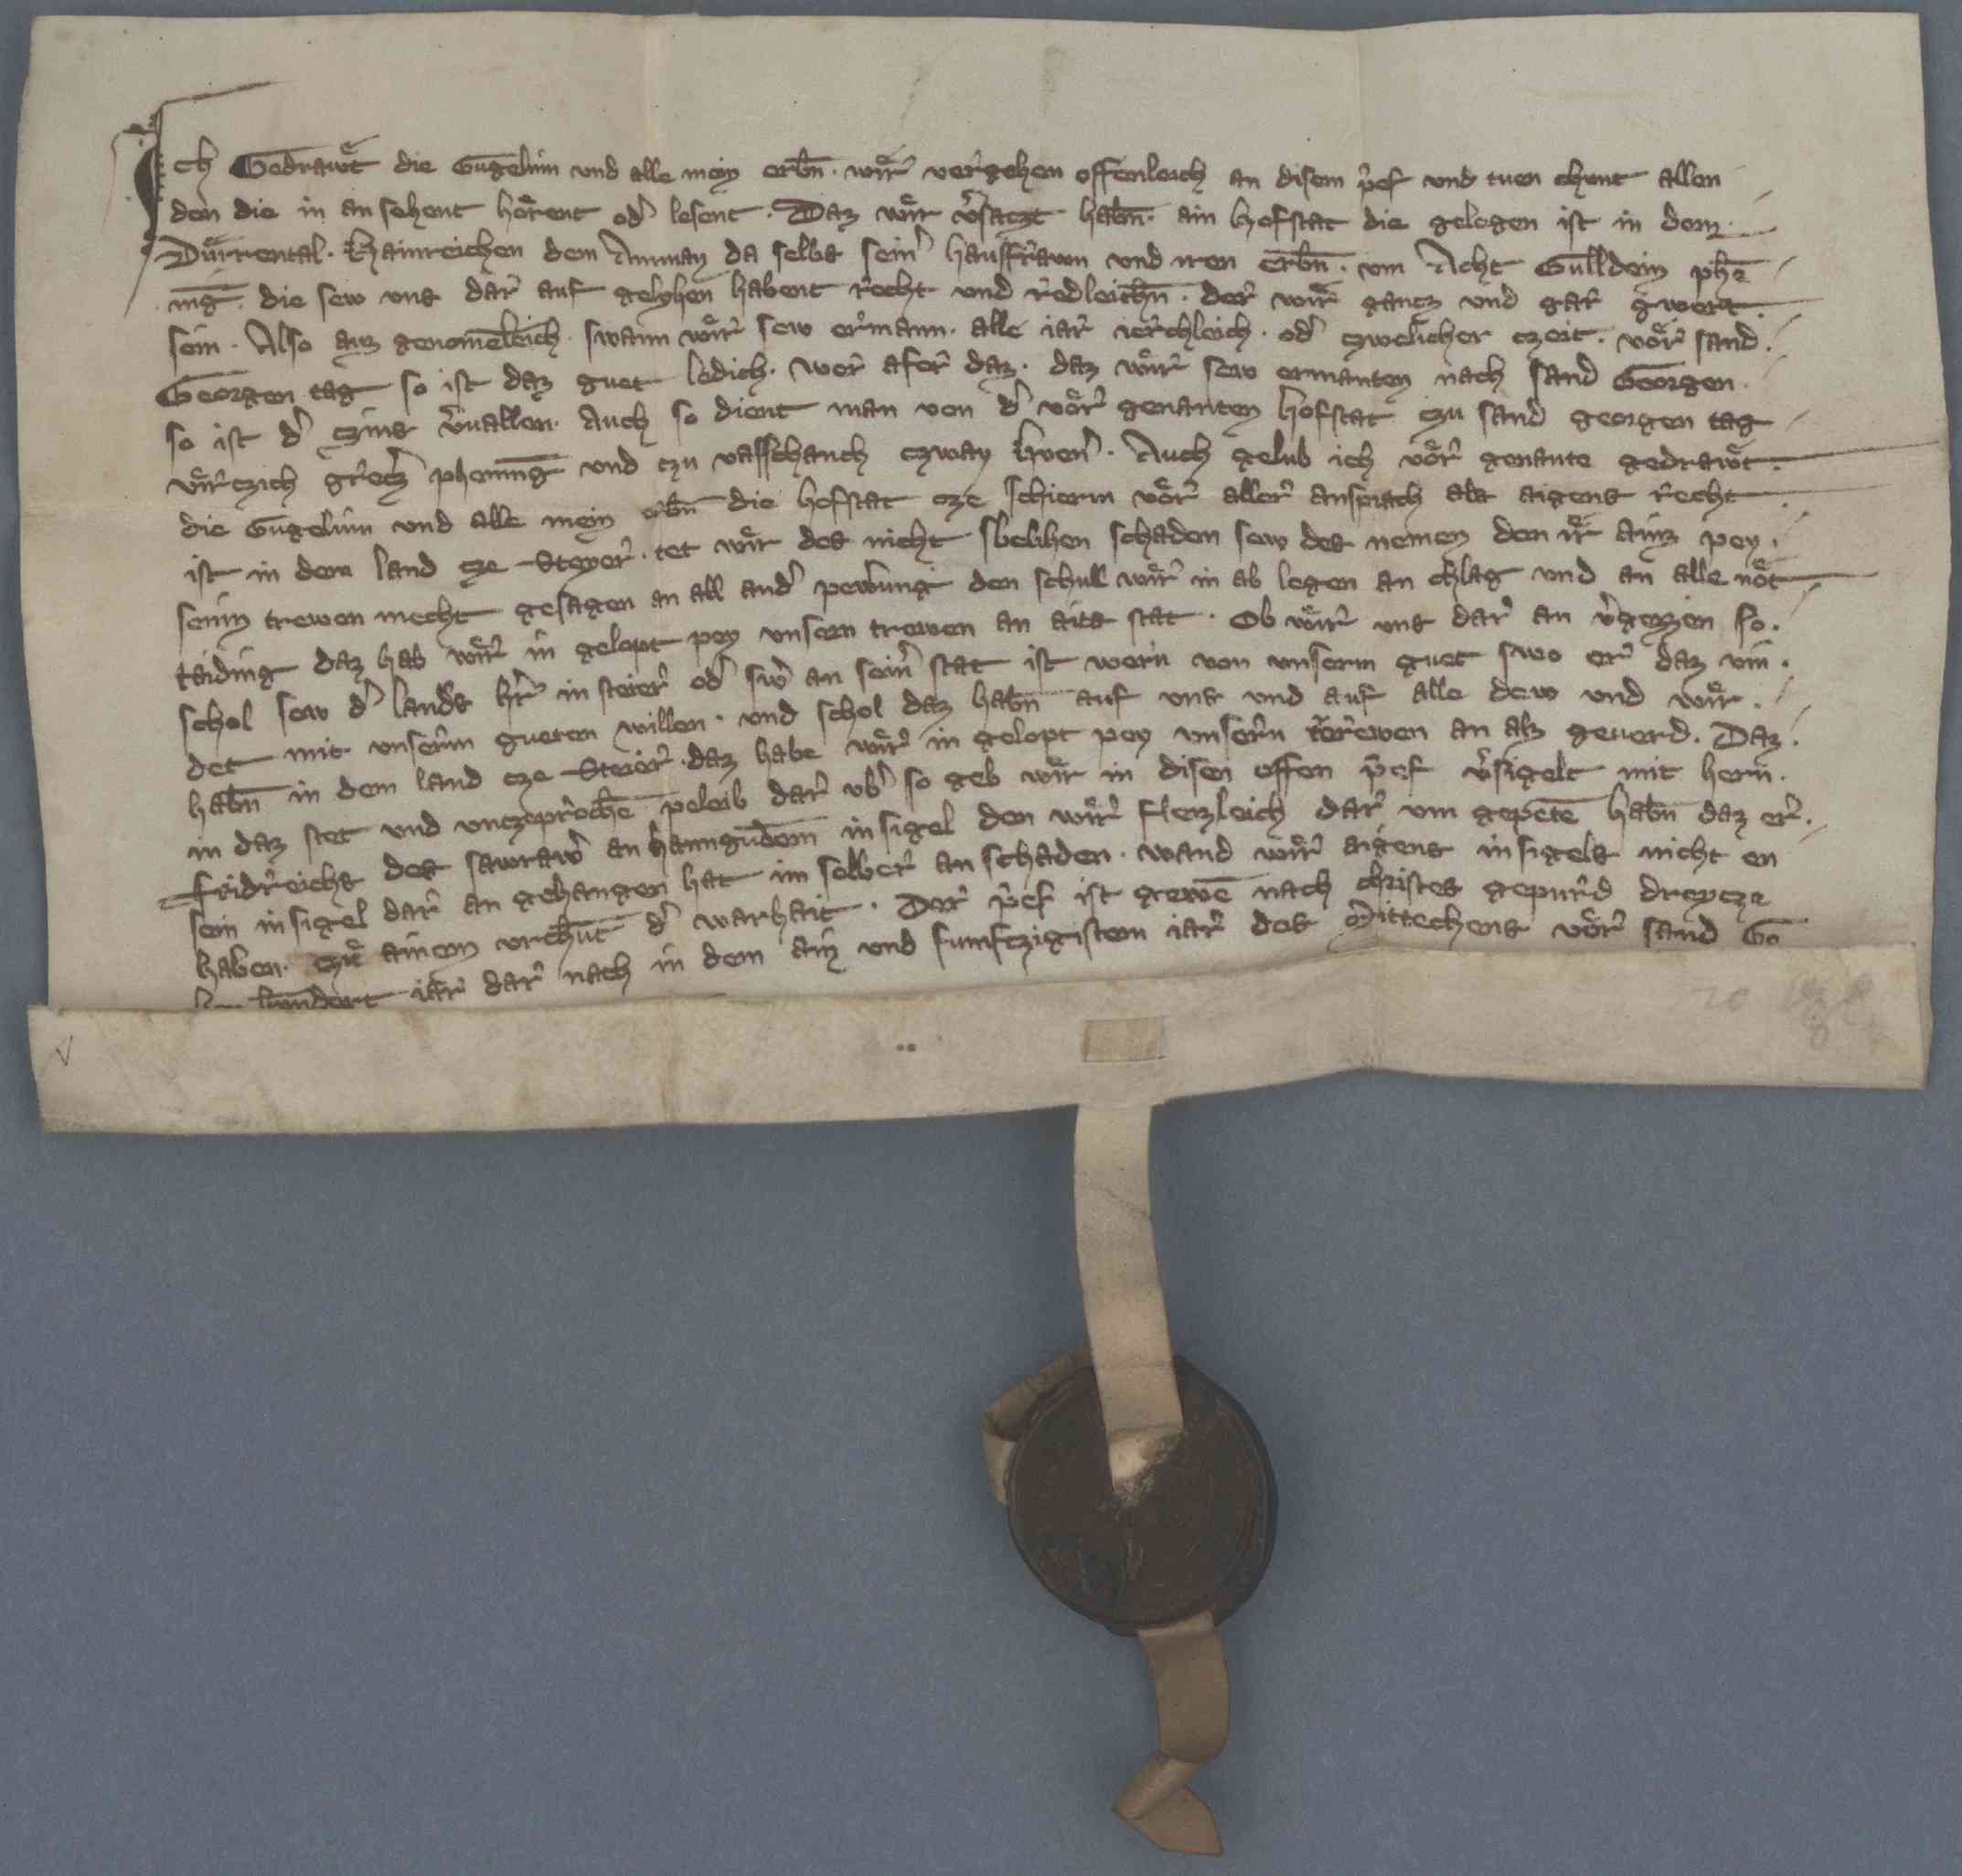 Ich Gedrawͤt die Gugelnin vnd alle mein erbn̄. wiͤr vergehem offenleich an disem p̄ef vnd tuen chunt allen
den die in an sehent hoͤrent od̕ lesent. Daz wiͤr v̕saczt habn̄. ain hofstat die gelegen ist in dem
Duͤrrental. Hainreichen dem Amman da selbs sein̕ hausfrawn vnd iren erbn̄. vm Acht Gulldein phē
inḡ. die sew vns dar auf gelyhen habent recht vnd redleichn̄. der wiͤr gancz vnd gar gwert
sein. Also auz genomēleich. swann wiͤr sew ermann. alle iar ierchleich. od̕ czwelicher czeit. voͤr sand
Georgen tag so ist daz guet ledich. wer afer daz. daz wiͤr sew ermanten nach sand Georgen.
so ist d̕ czins v̕uallen. Auch so dient man von d̕ voͤr genanten hofstat czu sand georgen tag
viͤrczich grecz̕ pheninḡ vnd czu vasschanch czway huen̕. Auch gelub ich voͤr genante gedrawͤt.
die Gugelnin vnd alle mein erbn̄ die hofstat cze schierm voͤr aller ansprach als aigens recht
ist in dem land cze Steyer. tet wiͤr des nicht swelihen schaden sew des nemen den iͤr ainz pey
sein trewen mecht gesagen an all and̕ pewerung den schull wiͤr in ab legen an chlag vnd an alle noͤt
taiding daz hab wiͤr in gelopt pey vnsern trewen an aits stat. Ob wiͤr vns dar an v̕gezzen so
schol sew d̕ landes h̕r in steier od̕ sw̕ an sein̕ stat ist wern von vnserm guet swo er daz vin
det mit vnserm gueten willen. vnd schol daz habn̄ auf vns vnd auf alle dew vnd wiͤr
habn̄ in dem land cze Steier. daz habe wiͤr in gelopt pey vnsern trewen an alz geuerd. Daz
in daz stet vnd vnczeprochē peleib dar vb̕ so geb wiͤr in disen offen p̄ef v̕sigelt mit hern
fridreichs des sawraw̕ an hanngundem insigel den wiͤr flezleich dar vm gepetē habn̄ daz er
sein insigel dar an gehangen hat im selber an schaden. wand wiͤr aigens insigels nicht en
haben. czuͤ ainem vrchūt d̕ warhait. Der p̄ef ist gewē nach christes gepurd dreycze
hen hundert iar dar nach in dem ain vnd fumfczigistem iar des Mittechens voͤr sand Go